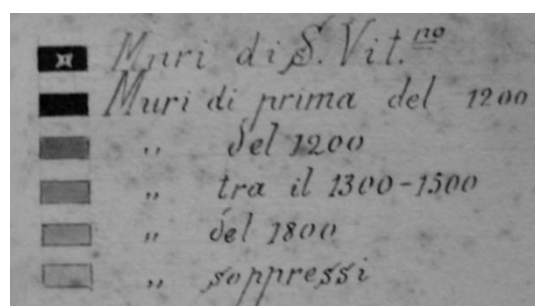 Muri di S. Vit.no
Muri di prima del 1200
„ del 1200
„ tra il 1300-1500
„ del 1800
„ soppressi